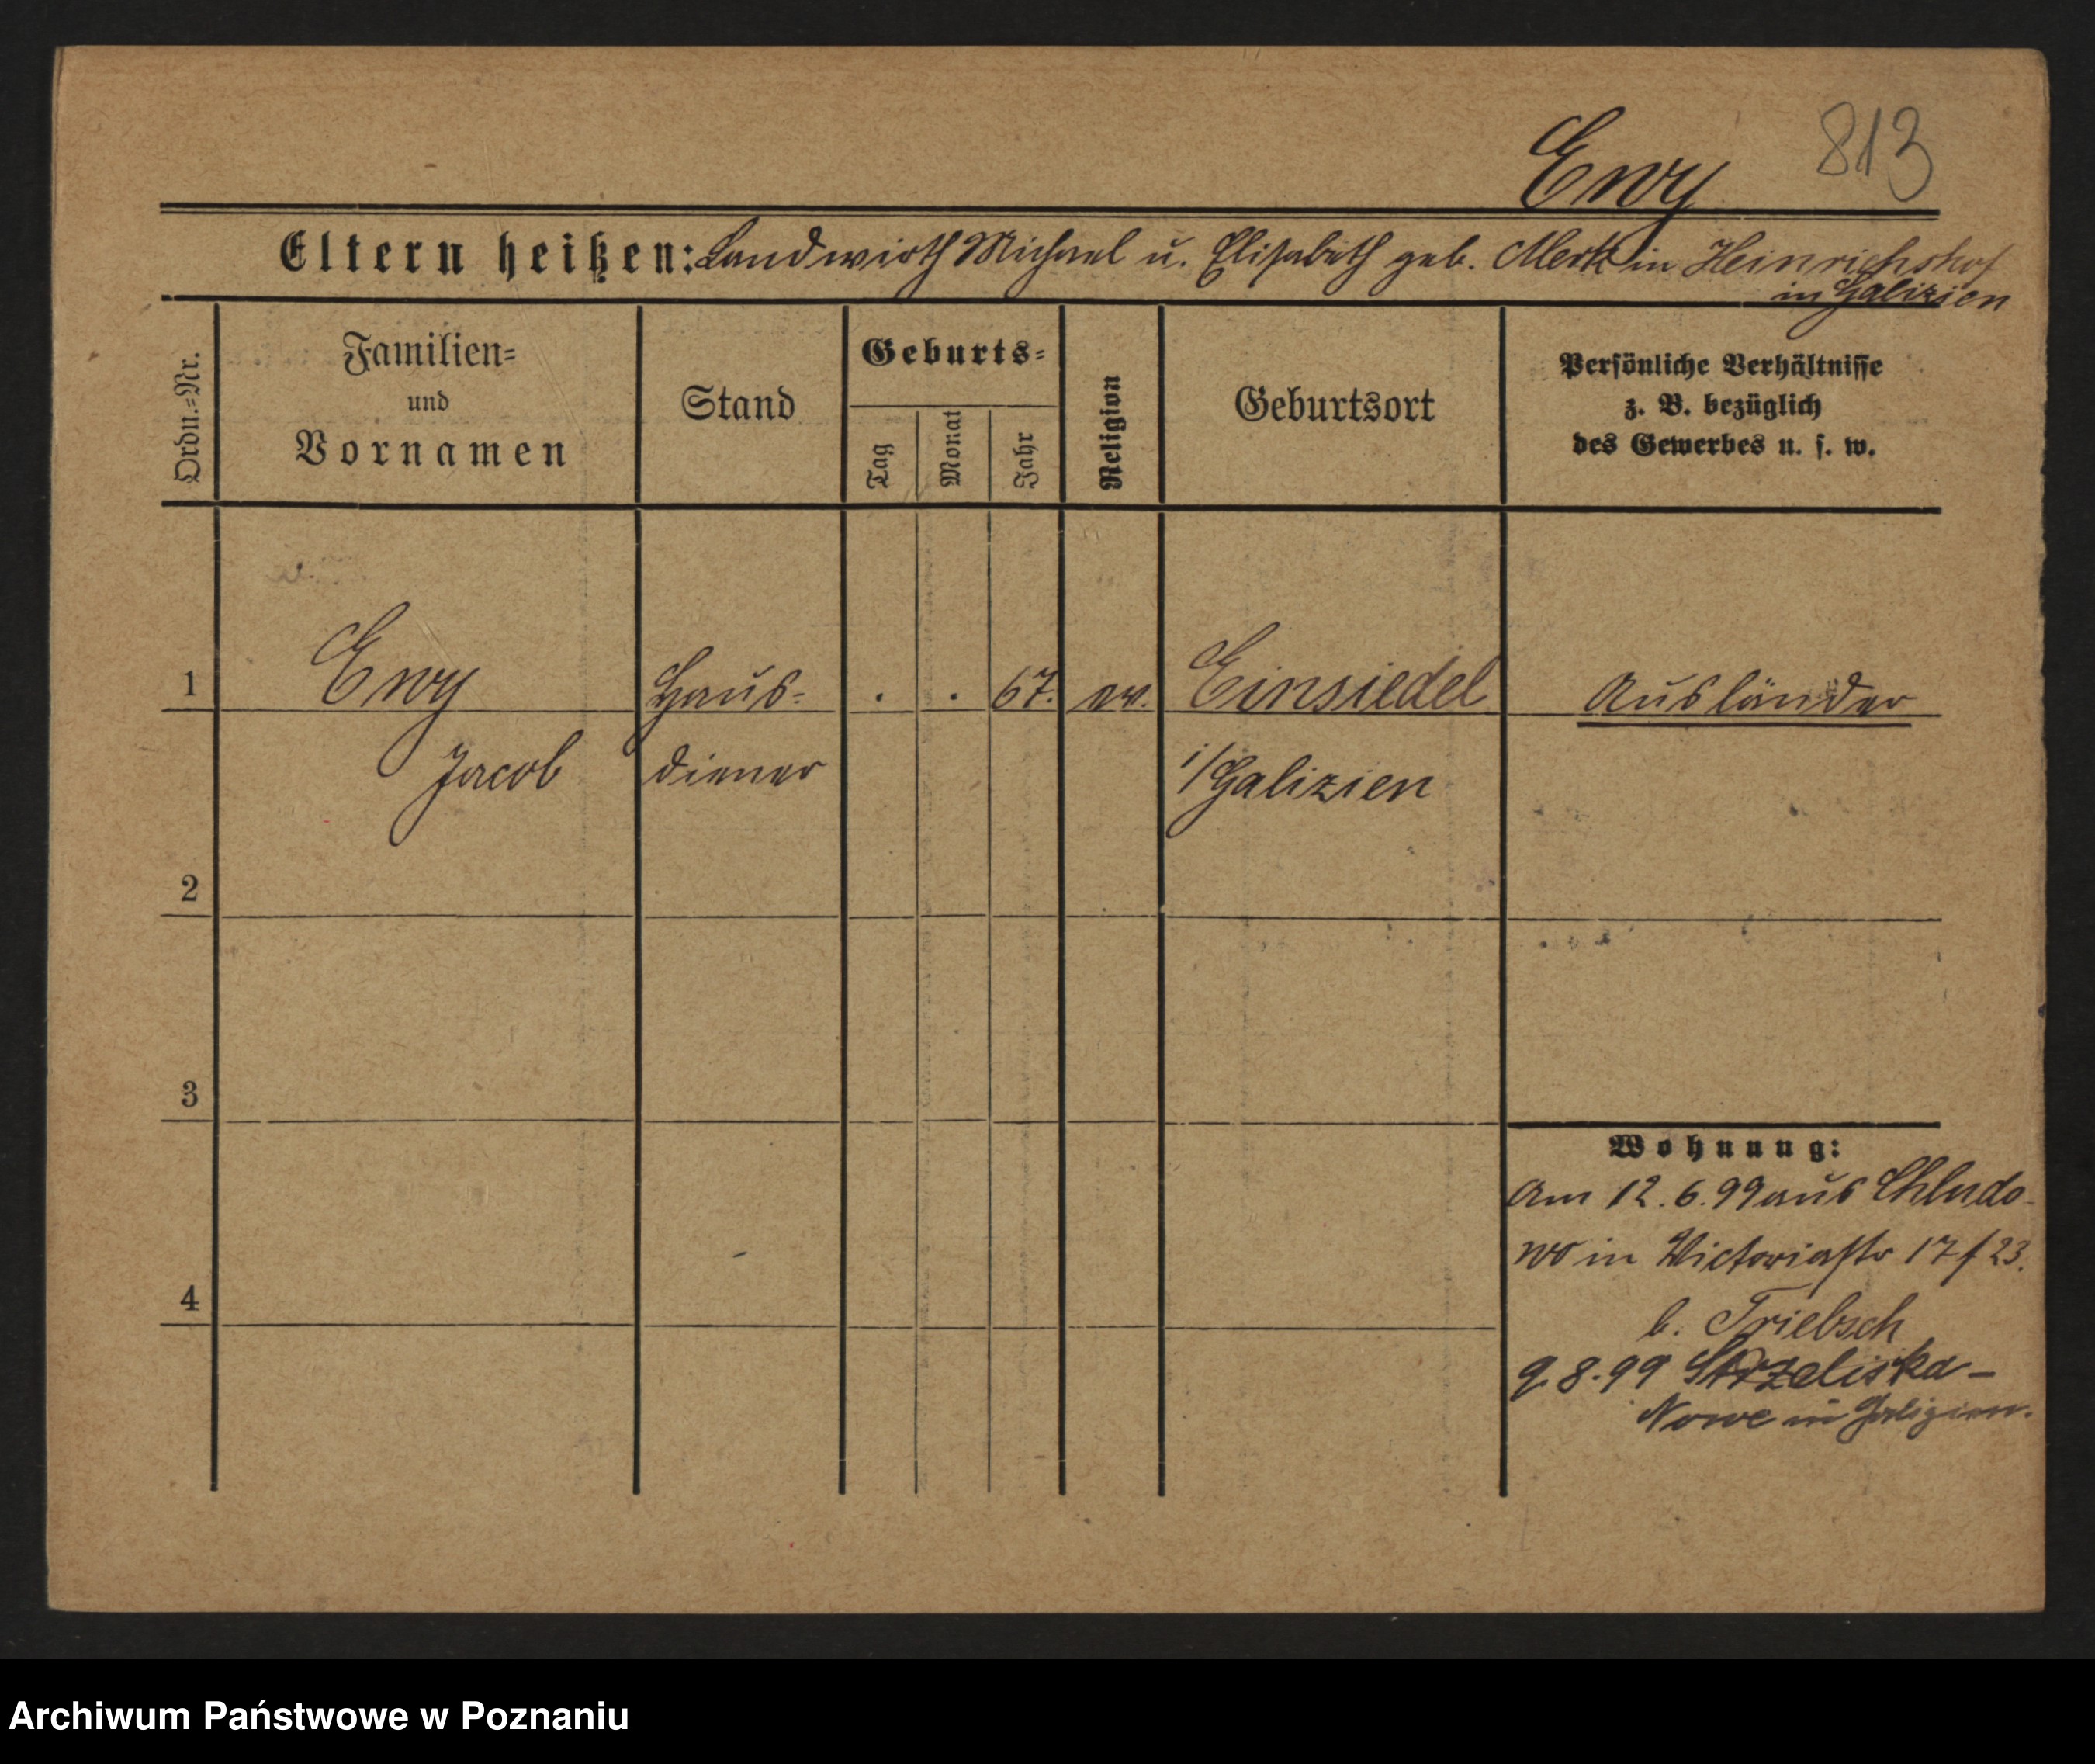 813
Ewy
Eltern heißen: Landwirth Michael u. Elisabeth geb. Merk in Heinrichshof
in Galizien
Ordn.=Nr.
Familien=
und
Vornamen
Stand
Geburts=
Tag
Monat
Jahr
Religion
Geburtsort
Persönliche Verhältnisse
z. B. bezüglich
des Gewerbes u. s. w.
1 Ewy Haus= . . 67. ev. Einsiedel Ausländer
Jacob diener i/Galizien
2
3
4
Wohnung:
Am 12.6.99 aus Chludo-
wo in Victoriastr 17/23.
b. Triebsch
9.8.99 Strzeliska-
Nowe in Galizien.
Archiwum Państwowe w Poznaniu